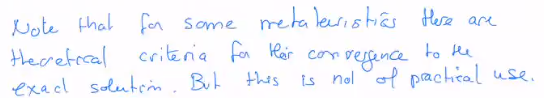 Note that for some metaheuristics there are
theoretical criteria for their convergence to the
exact solution. But this is not of practical use.